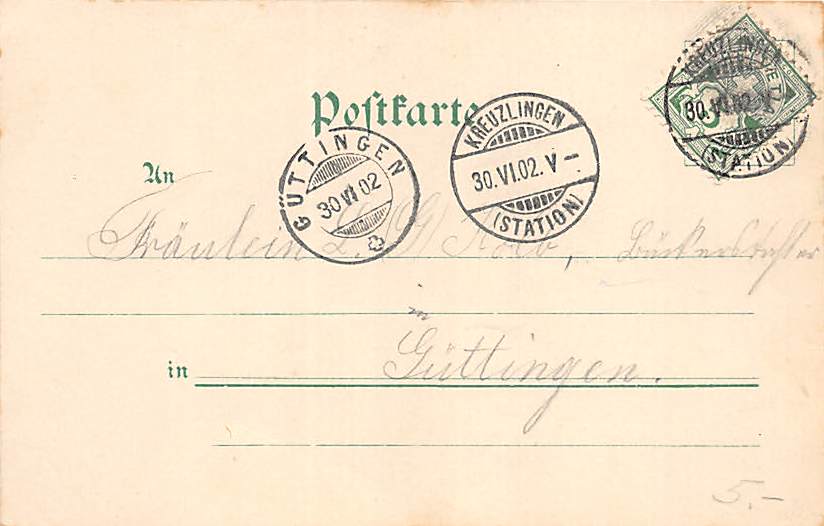 KREUZLINGEN
30.VI.02.V
(STATION)
Postkarte
KREUZLINGEN
30.VI.02.V-
(STATION)
GÜTTINGEN
30 VI 02
An
Fräulein L. (G) Kolb,
in
in Güttingen.
5.-